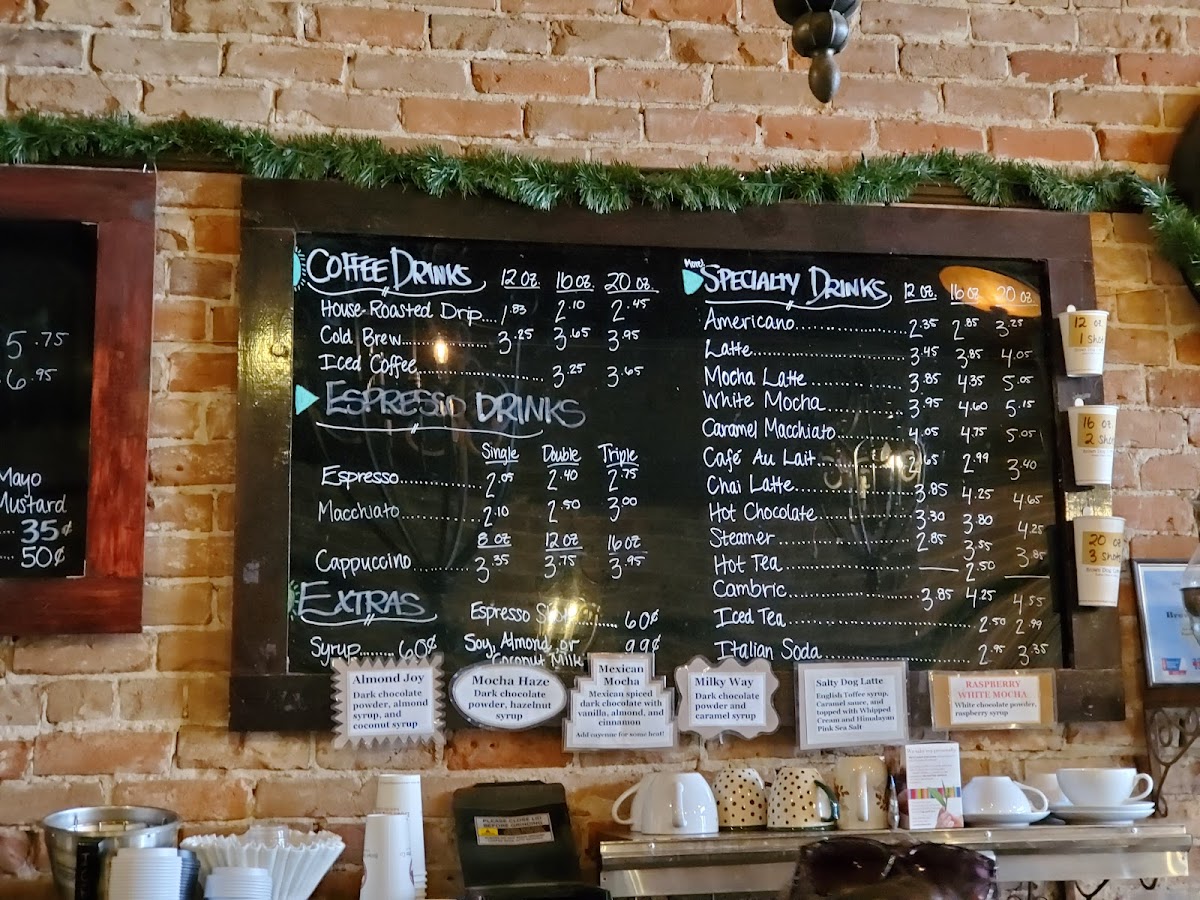 5.75
6.95
Mayo
Mustard
35¢
50¢
COFFEE DRINKS 12 oz. 16 oz. 20 oz.
House-Roasted Drip.... 1.83 2.10 2.45
Cold Brew............ 3.25 3.65 3.95
Iced Coffee.................. 3.25 3.65
ESPRESSO DRINKS
Single Double Triple
Espresso............ 2.05 2.40 2.75
Macchiato............ 2.10 2.50 3.00
8 oz 12 oz 16 oz
Cappuccino............ 3.35 3.75 3.95
EXTRAS
Espresso Shot......... 60¢
Syrup........ 60¢
Soy, Almond, or Coconut Milk 99¢
More!
SPECIALTY DRINKS 12 oz. 16 oz. 20 oz.
Americano.................. 2.35 2.85 3.25
Latte........................ 3.45 3.85 4.05
Mocha Latte.............. 3.85 4.35 5.05
White Mocha............ 3.95 4.60 5.15
Caramel Macchiato.......... 4.05 4.75 5.05
Café Au Lait............ 2.65 2.99 3.40
Chai Latte.................. 3.85 4.25 4.65
Hot Chocolate............ 3.30 3.80 4.25
Steamer.................. 2.85 3.55 3.85
Hot Tea.................. — 2.50 —
Cambric.................. 3.85 4.25 4.55
Iced Tea.............................. 2.50 2.99
Italian Soda........................ 2.95 3.35
12 oz
1 shot
16 oz
2 shot
20 oz
3 shots
Almond Joy
Dark chocolate
powder, almond
syrup, and
coconut syrup
Mocha Haze
Dark chocolate
powder, hazelnut
syrup
Mexican
Mocha
Mexican spiced
dark chocolate with
vanilla, almond, and
cinnamon
Add cayenne for some heat!
Milky Way
Dark chocolate
powder and
caramel syrup
Salty Dog Latte
English Toffee syrup,
Caramel sauce, and
topped with Whipped
Cream and Himalayan
Pink Sea Salt
RASPBERRY
WHITE MOCHA
White chocolate powder,
raspberry syrup
PLEASE CLOSE LID
BEFORE GRINDING